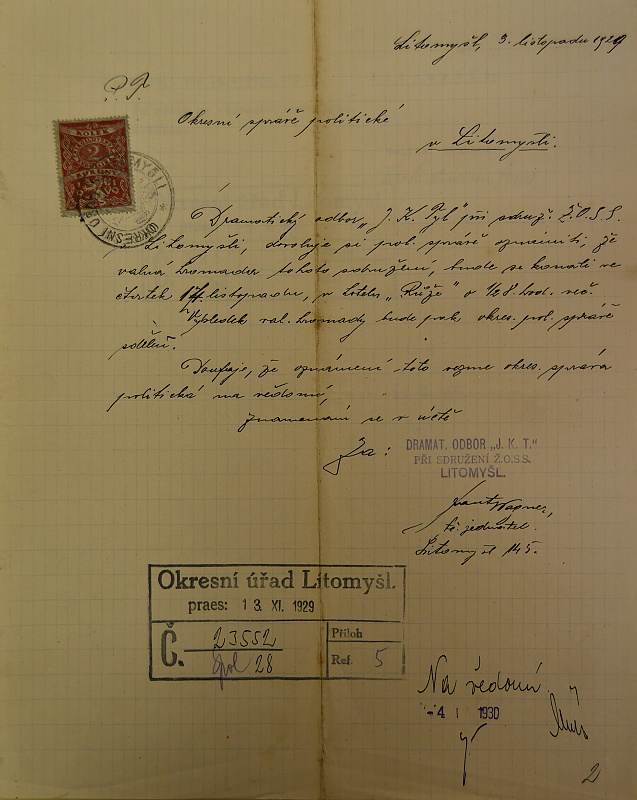 Litomyšl, 3. listopadu 1929
P. T.
Okresní správě politické
v Litomyšli.
KOLEK
2
KORUNY
OKRESNÍ Ú
Dramatický odbor „J. K. Tyl" při sdruž. Ž.O.S.S.
v Litomyšli, dovoluje si pol. správě oznámiti, že
valná hromada tohoto sdružení, bude se konati ve
čtvrtek 14. listopadu, v hotelu „Růže" o 1/2 8. hod. več.
Výsledek val. hromady bude pak okres. pol. správě
sdělen.
Doufaje, že oznámení toto vezme okres. správa
politická na vědomí,
znamenám se v úctě
Za:
DRAMAT. ODBOR „J. K. T."
PŘI SDRUŽENÍ Ž.O.S.S.
LITOMYŠL.
Wagner,
t.č. jednatel.
Litomyšl 145.
Okresní úřad Litomyšl.
praes: 13. XI. 1929
Č. 23552
28
Příloh
Ref. 5
Na vědomí
-4 I 1930
2